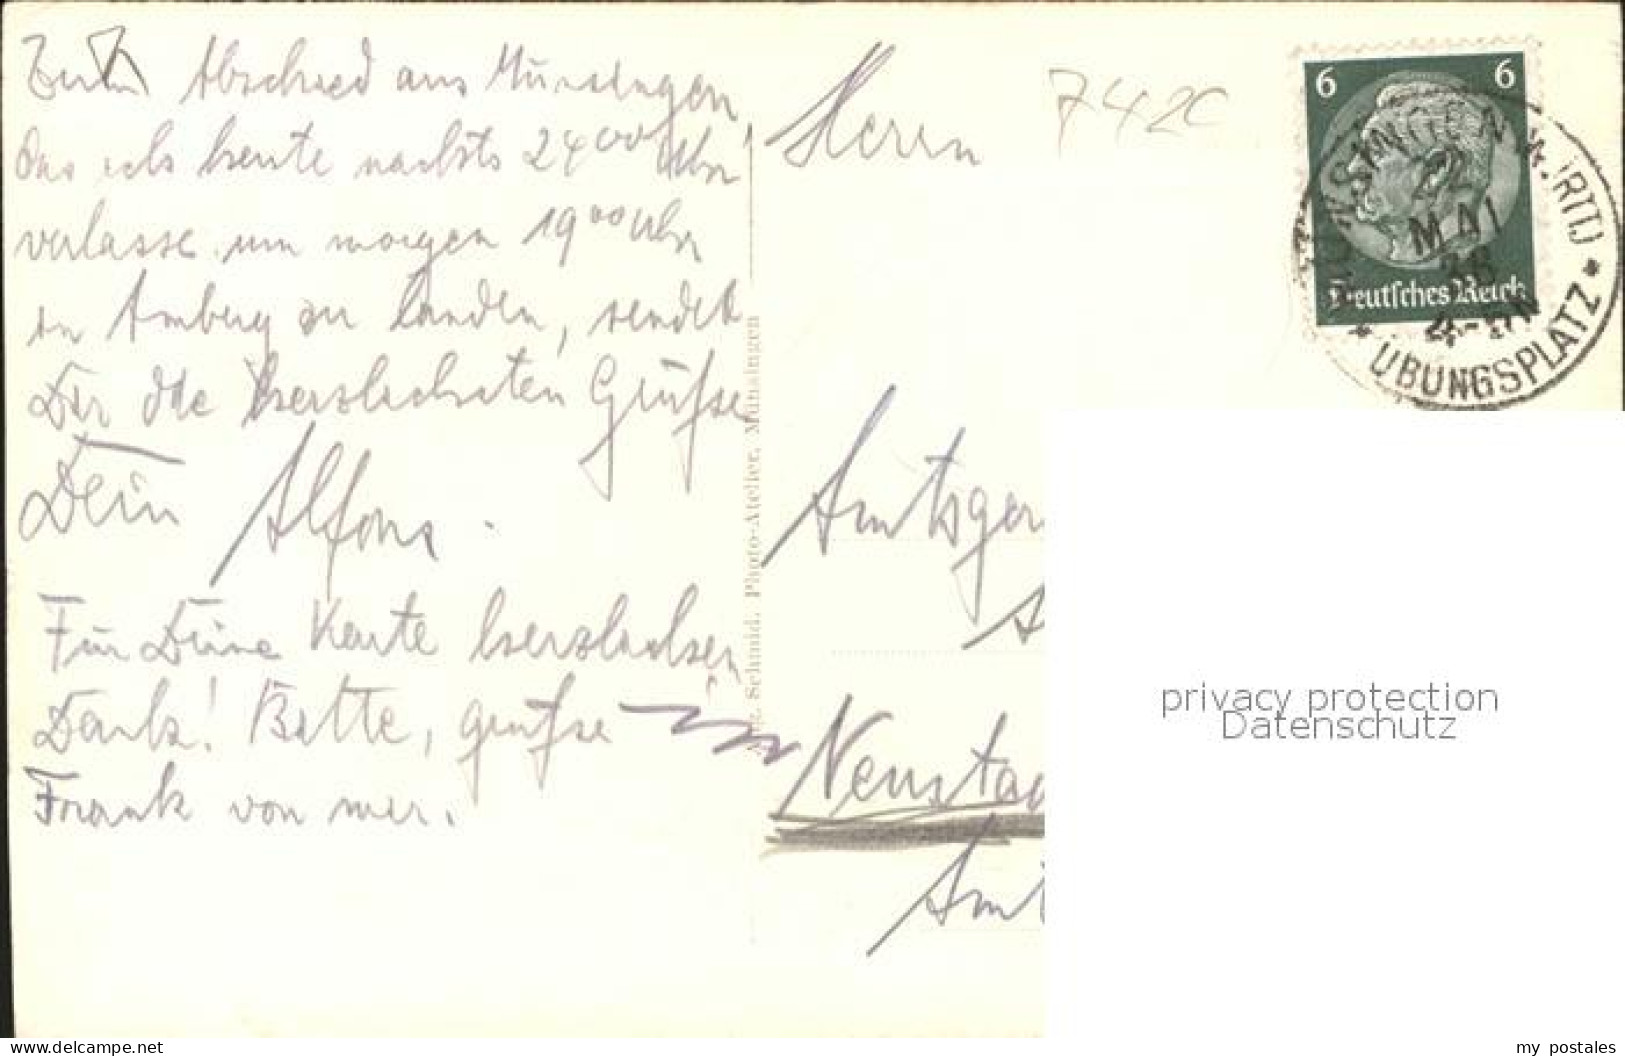 Zum Abschied aus Münsingen,
das ich heute nachts 24⁰⁰ Uhr
verlasse um morgen 19⁰⁰ Uhr
in Amberg zu landen, sendet
Dir die herzlichsten Grüße
Dein Alfons.
Für Deine Karte herzlichen
Dank! Bitte, grüße
Frank von mir.
Schmid, Photo-Atelier, Münsingen
Herrn
7420
Amtsger
Neustad
Am
6 6
Deutsches Reich
MÜNSINGEN (WÜRTT)
22
MAI
38
4-5N
* ÜBUNGSPLATZ *
privacy protection
Datenschutz
www.delcampe.net
my_postales